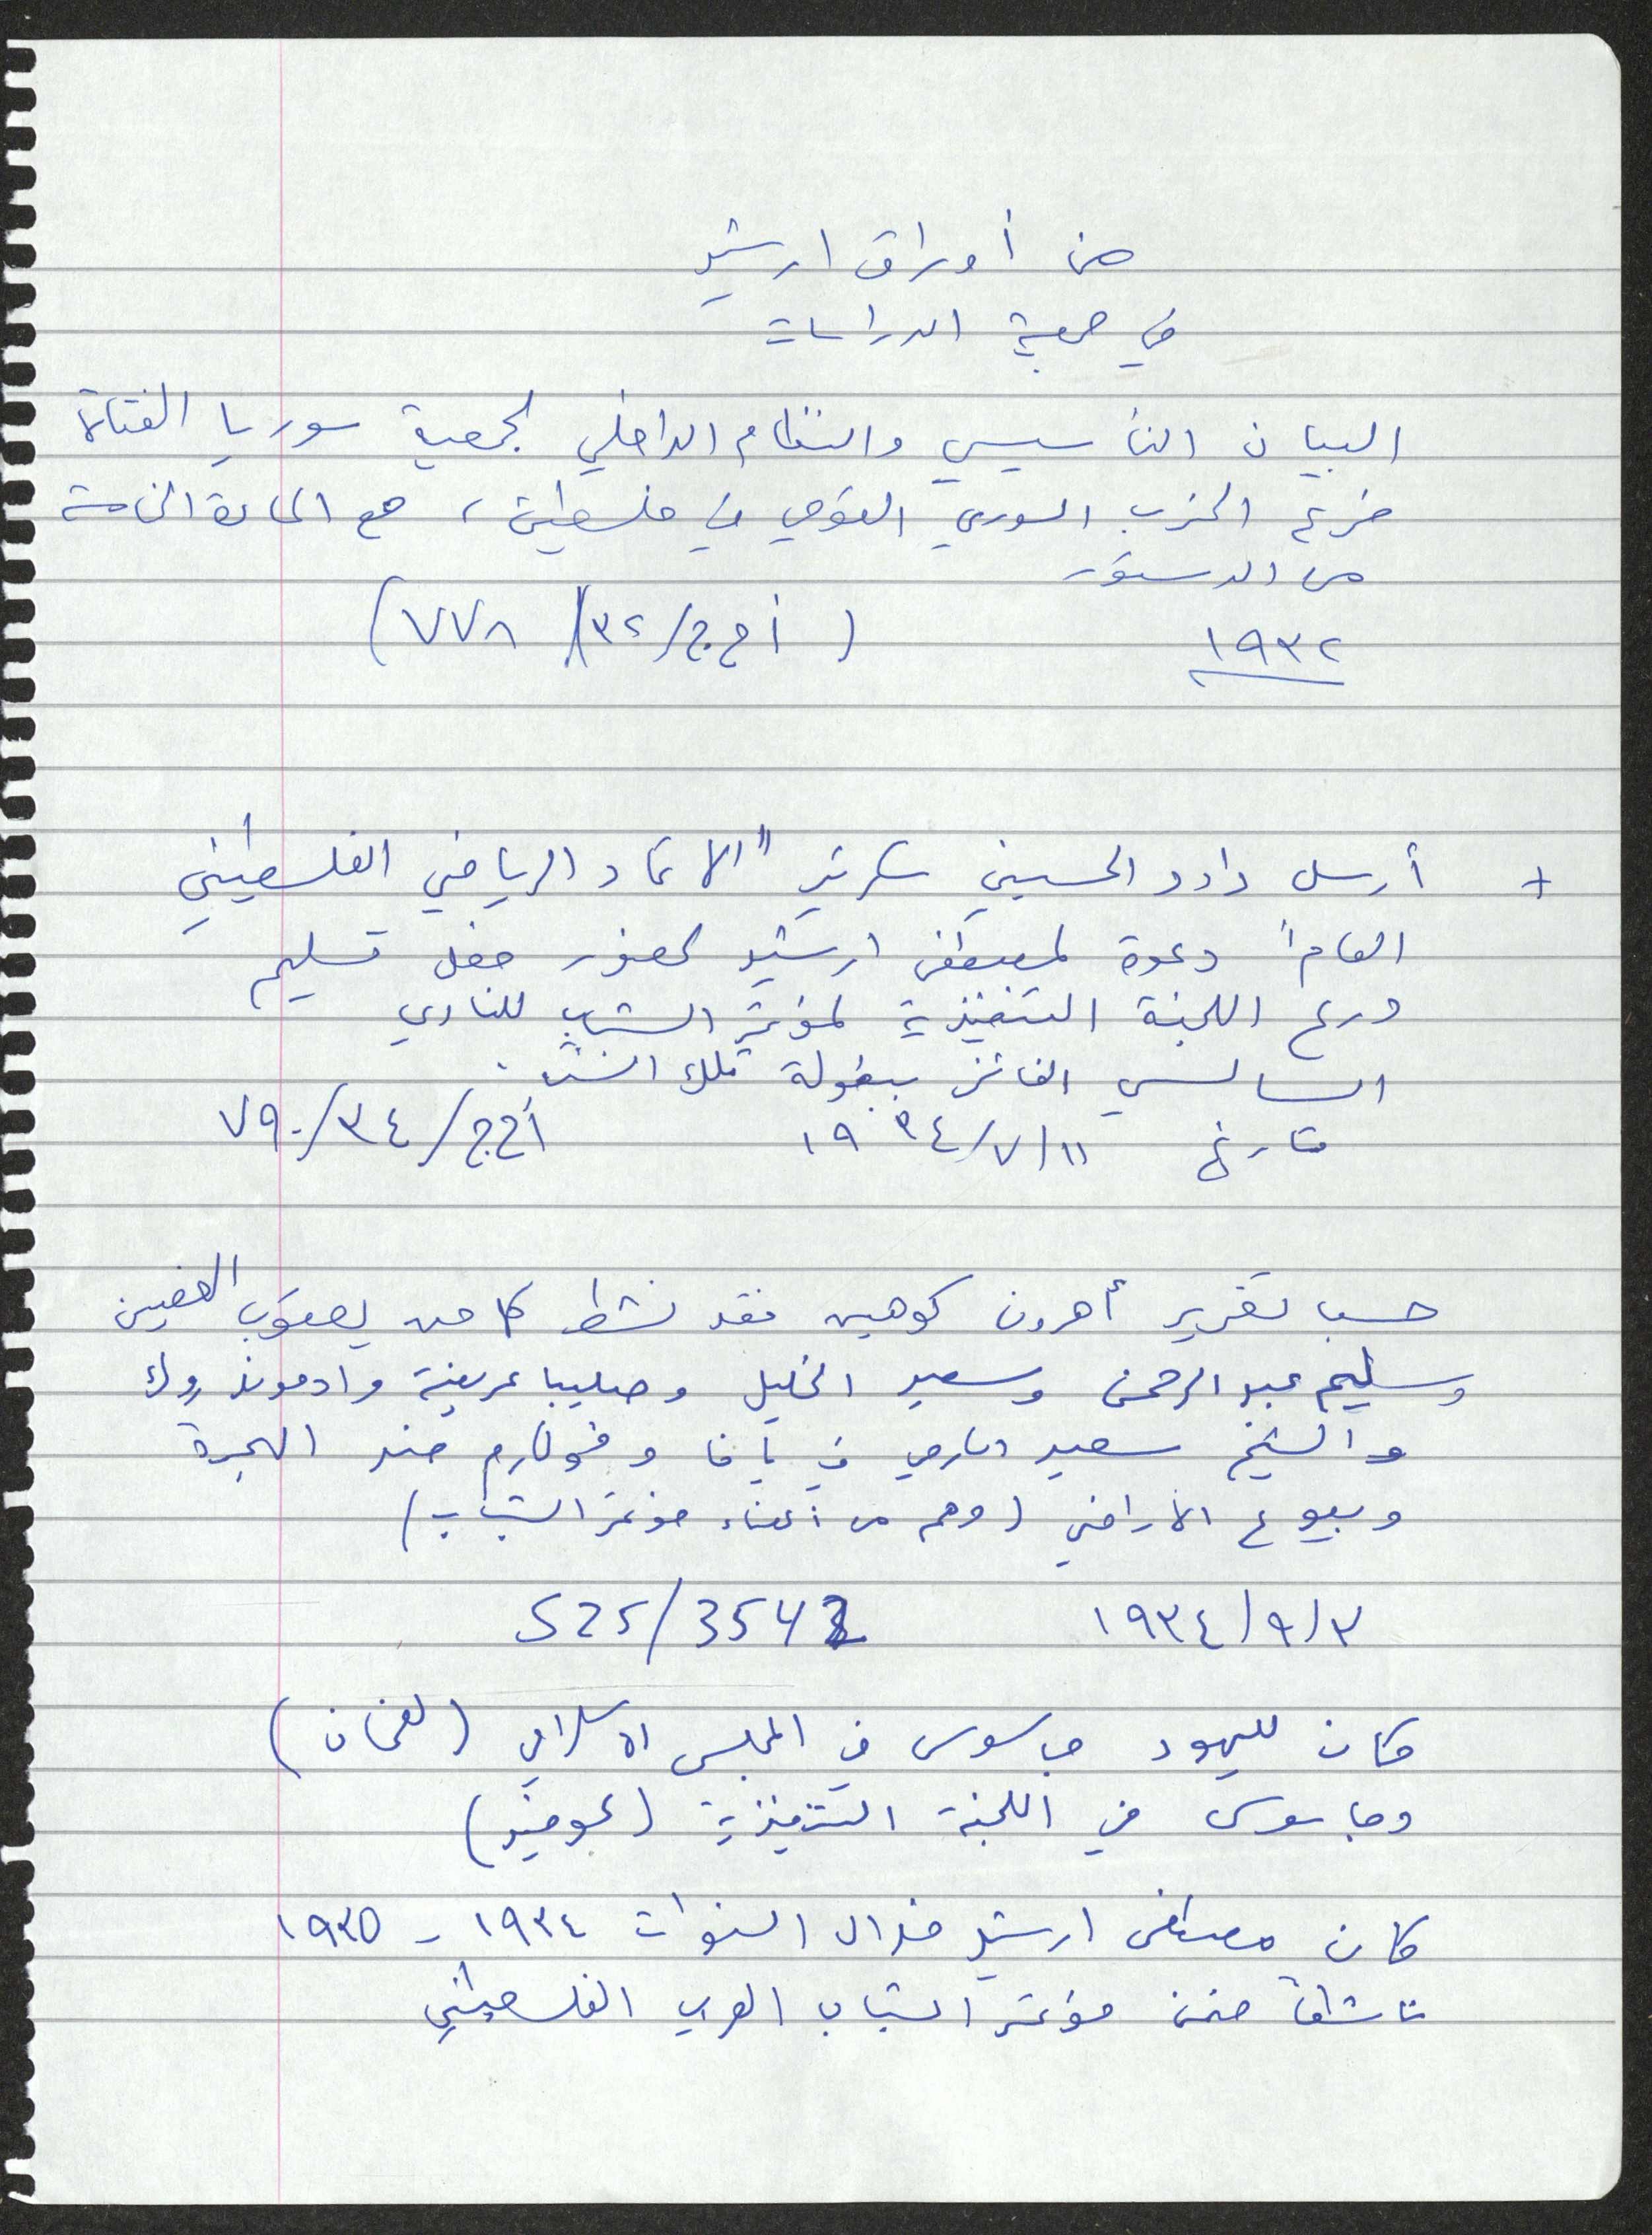 من أوراق ارشيد
في جمعية الدراسات
البيان التأسيسي والنظام الداخلي لجمعية سوريا الفتاة
فرع الحزب السوري القومي في فلسطين، مع المادة الخامسة
من الدستور
١٩٣٢ (أ ح ج/٣٢/ ٧٧٨)
+ أرسل داود الحسيني سكرتير "الاتحاد الرياضي الفلسطيني
العام" دعوة لمصطفى ارشيد لحضور حفل تسليم
درع اللجنة التنفيذية لمؤتمر الشباب للنادي
السالسي الفائز ببطولة تلك السنة.
تاريخ ١١/٧/١٩٣٤ أ ح ج/٣٤/٧٩٠
حسب تقرير أهرون كوهين فقد نشط كل من يعقوب الغصين
وسليم عبد الرحمن وسعيد الخليل وصليبا عريضة وادموند روك
والشيخ سعيد في يافا وطولكرم ضد الهجرة
وبيوع الأراضي (وهم من أعضاء مؤتمر الشباب)
٣/٩/١٩٣٤ S25/3542
كان لليهود جاسوس في المجلس الاسلامي (لقمان)
وجاسوس في اللجنة التنفيذية
كان مصطفى ارشيد خلال السنوات ١٩٣٤ - ١٩٣٥
ناشطاً ضمن مؤتمر الشباب العربي الفلسطيني